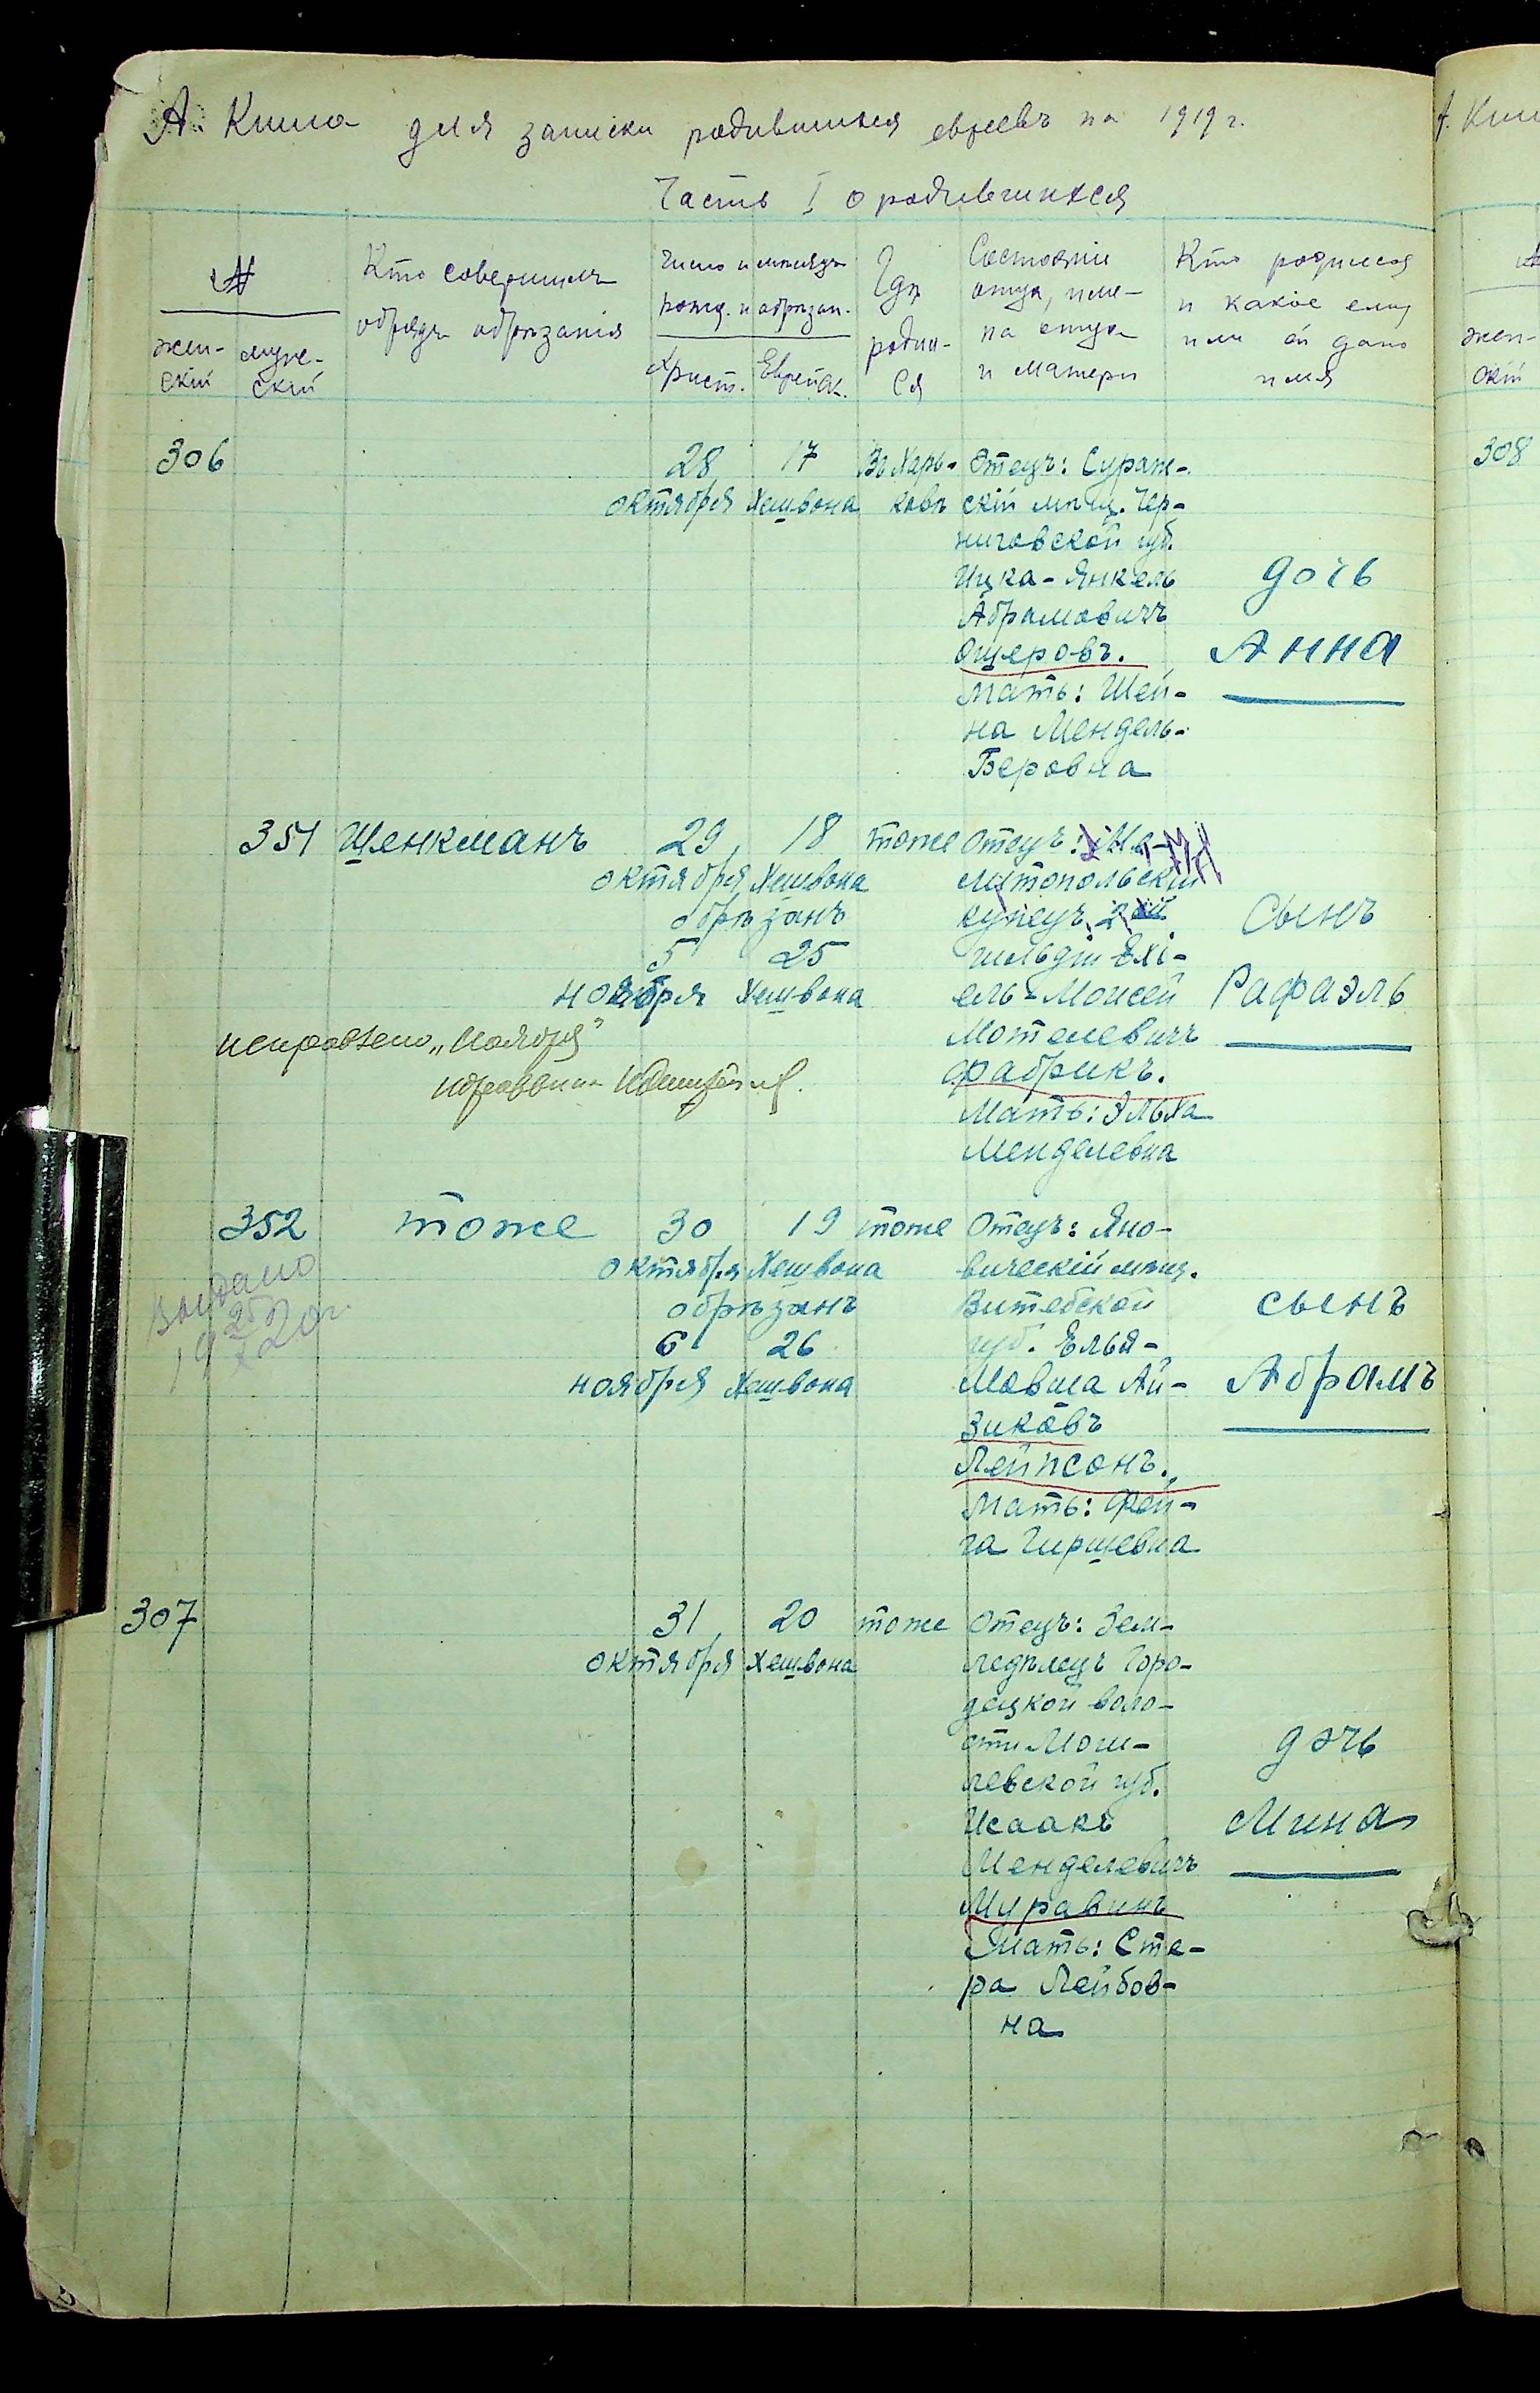 А. Книга для записки родившихся евреевъ на 1919 г.
Часть I о родившихся
№
жен-
скій
муже-
скій
Кто совершилъ
обрядъ обрѣзанія
Число и мѣсяцъ
рожд. и обрѣзан.
Христ.
Еврейск.
Гдѣ
родил-
ся
Состояніе
отца, име-
на отца
и матери
Кто родился
и какое ему
или ей дано
имя
306
28
октября
17
Хешвона
Въ Харь-
ковѣ
Отецъ: Сураж-
скій мѣщ. Чер-
ниговской губ.
Ицка-Янкель
Абрамовичъ
Ошеровъ.
Мать: Шей-
на Мендель-
Беровна
дочь
Анна
351
Шенкманъ
29
октября
18
Хешвона
обрѣзанъ
5
ноября
25
Хешвона
тоже
Отецъ: Ме-
литопольскій
купецъ 2ой
гильдіи Ехі-
ель-Моисей
Мотелевичъ
Фабрикъ.
Мать: Элька
Менделевна
сынъ
Рафаэль
исправлено „Ноября"
352
тоже
30
октября
19
Хешвона
обрѣзанъ
6
ноября
26
Хешвона
тоже
Отецъ: Яно-
вическій мѣщ.
Витебской
губ. Елья-
Мовша Ай-
зиковъ
Лейпсонъ.
Мать: Фей-
га Гиршевна
сынъ
Абрамъ
Выдано
1920г.
307
31
октября
20
Хешвона
тоже
Отецъ: Зем-
ледѣлецъ Горо-
децкой воло-
сти Моги-
левской губ.
Исаакъ
Менделевичъ
Муравинъ
Мать: Сте-
ра Лейбов-
на
дочь
Мина
308
жен-
скій